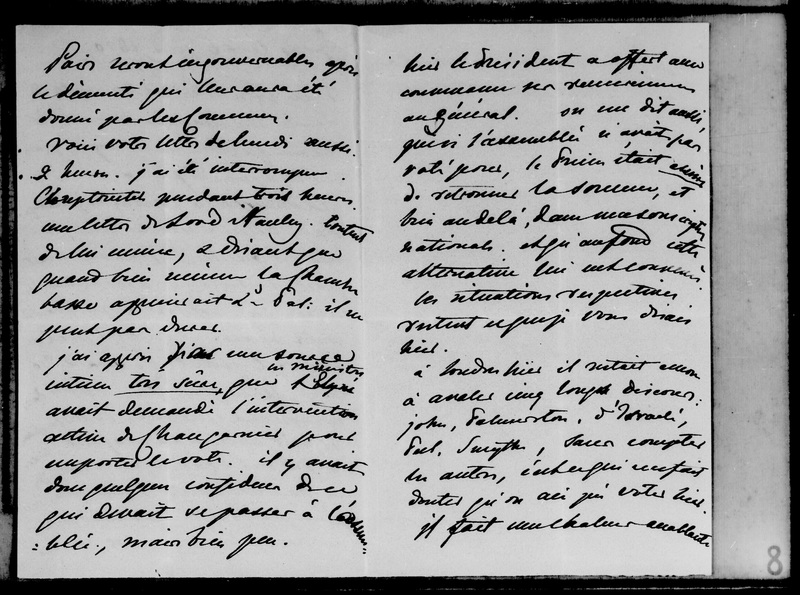 Pairs seront ingouvernables après
le démenti qui leur aura été
donné par les Communes.
Voici votre lettre de lundi aussi.
2 heures. j'ai été interrompue
pendant trois heures.
une lettre de Lord Stanley. Content
de lui même, & disant que
quand bien même la Chambre
basse appuierait Ld Pal: il ne
peut pas durer.
j'ai appris par une source
intime très sûre, que les ministres
avait demandé l'intervention
active de Changarnier pour
emporter le vote. il y avait
donc quelque confidence de ce
qui devait se passer à l'assem:
:blée, mais bien peu.
hier le Président a offert
au Général. on me dit aussi
que si l'assemblée n'avait pas
voté pour, le Prince était
de retrouver la somme, et
bien au delà, dans
nationale. et qu'au fond cette
alternative lui eut convenu.
les situations respectives
restent ce que je vous disais
hier.
à Londres hier il restait encore
à avaler cinq longs discours:
john, Palmerston, d'Israeli,
Peel, Smythe, sans compter
les autres, ce qui me fait
douter qu'on ait pu voter hier.
il fait une chaleur accablante
8